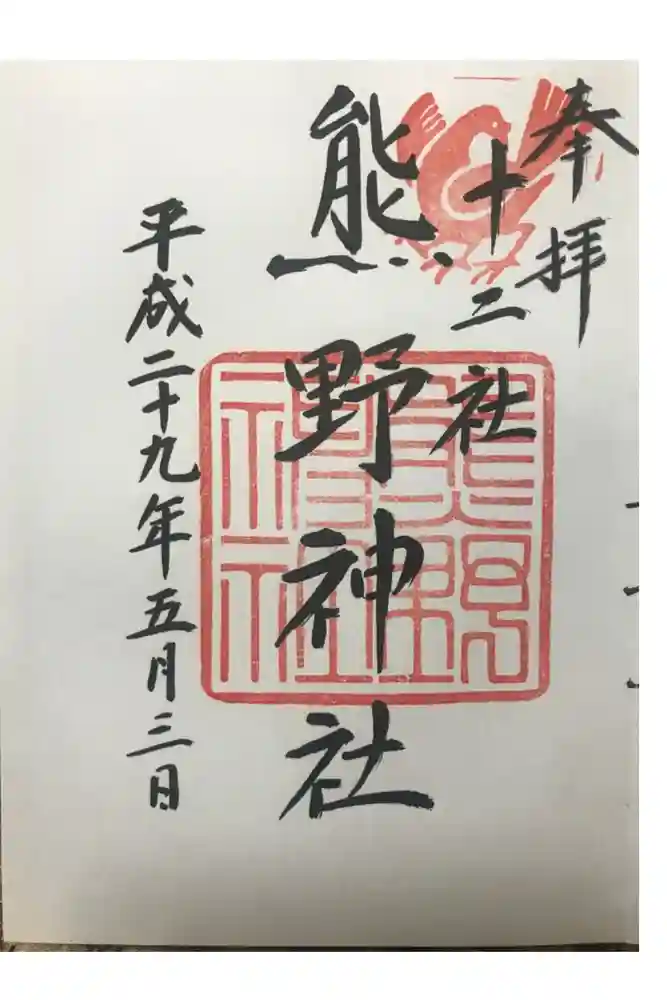 奉拝
十二社
熊野神社
平成二十九年五月三日